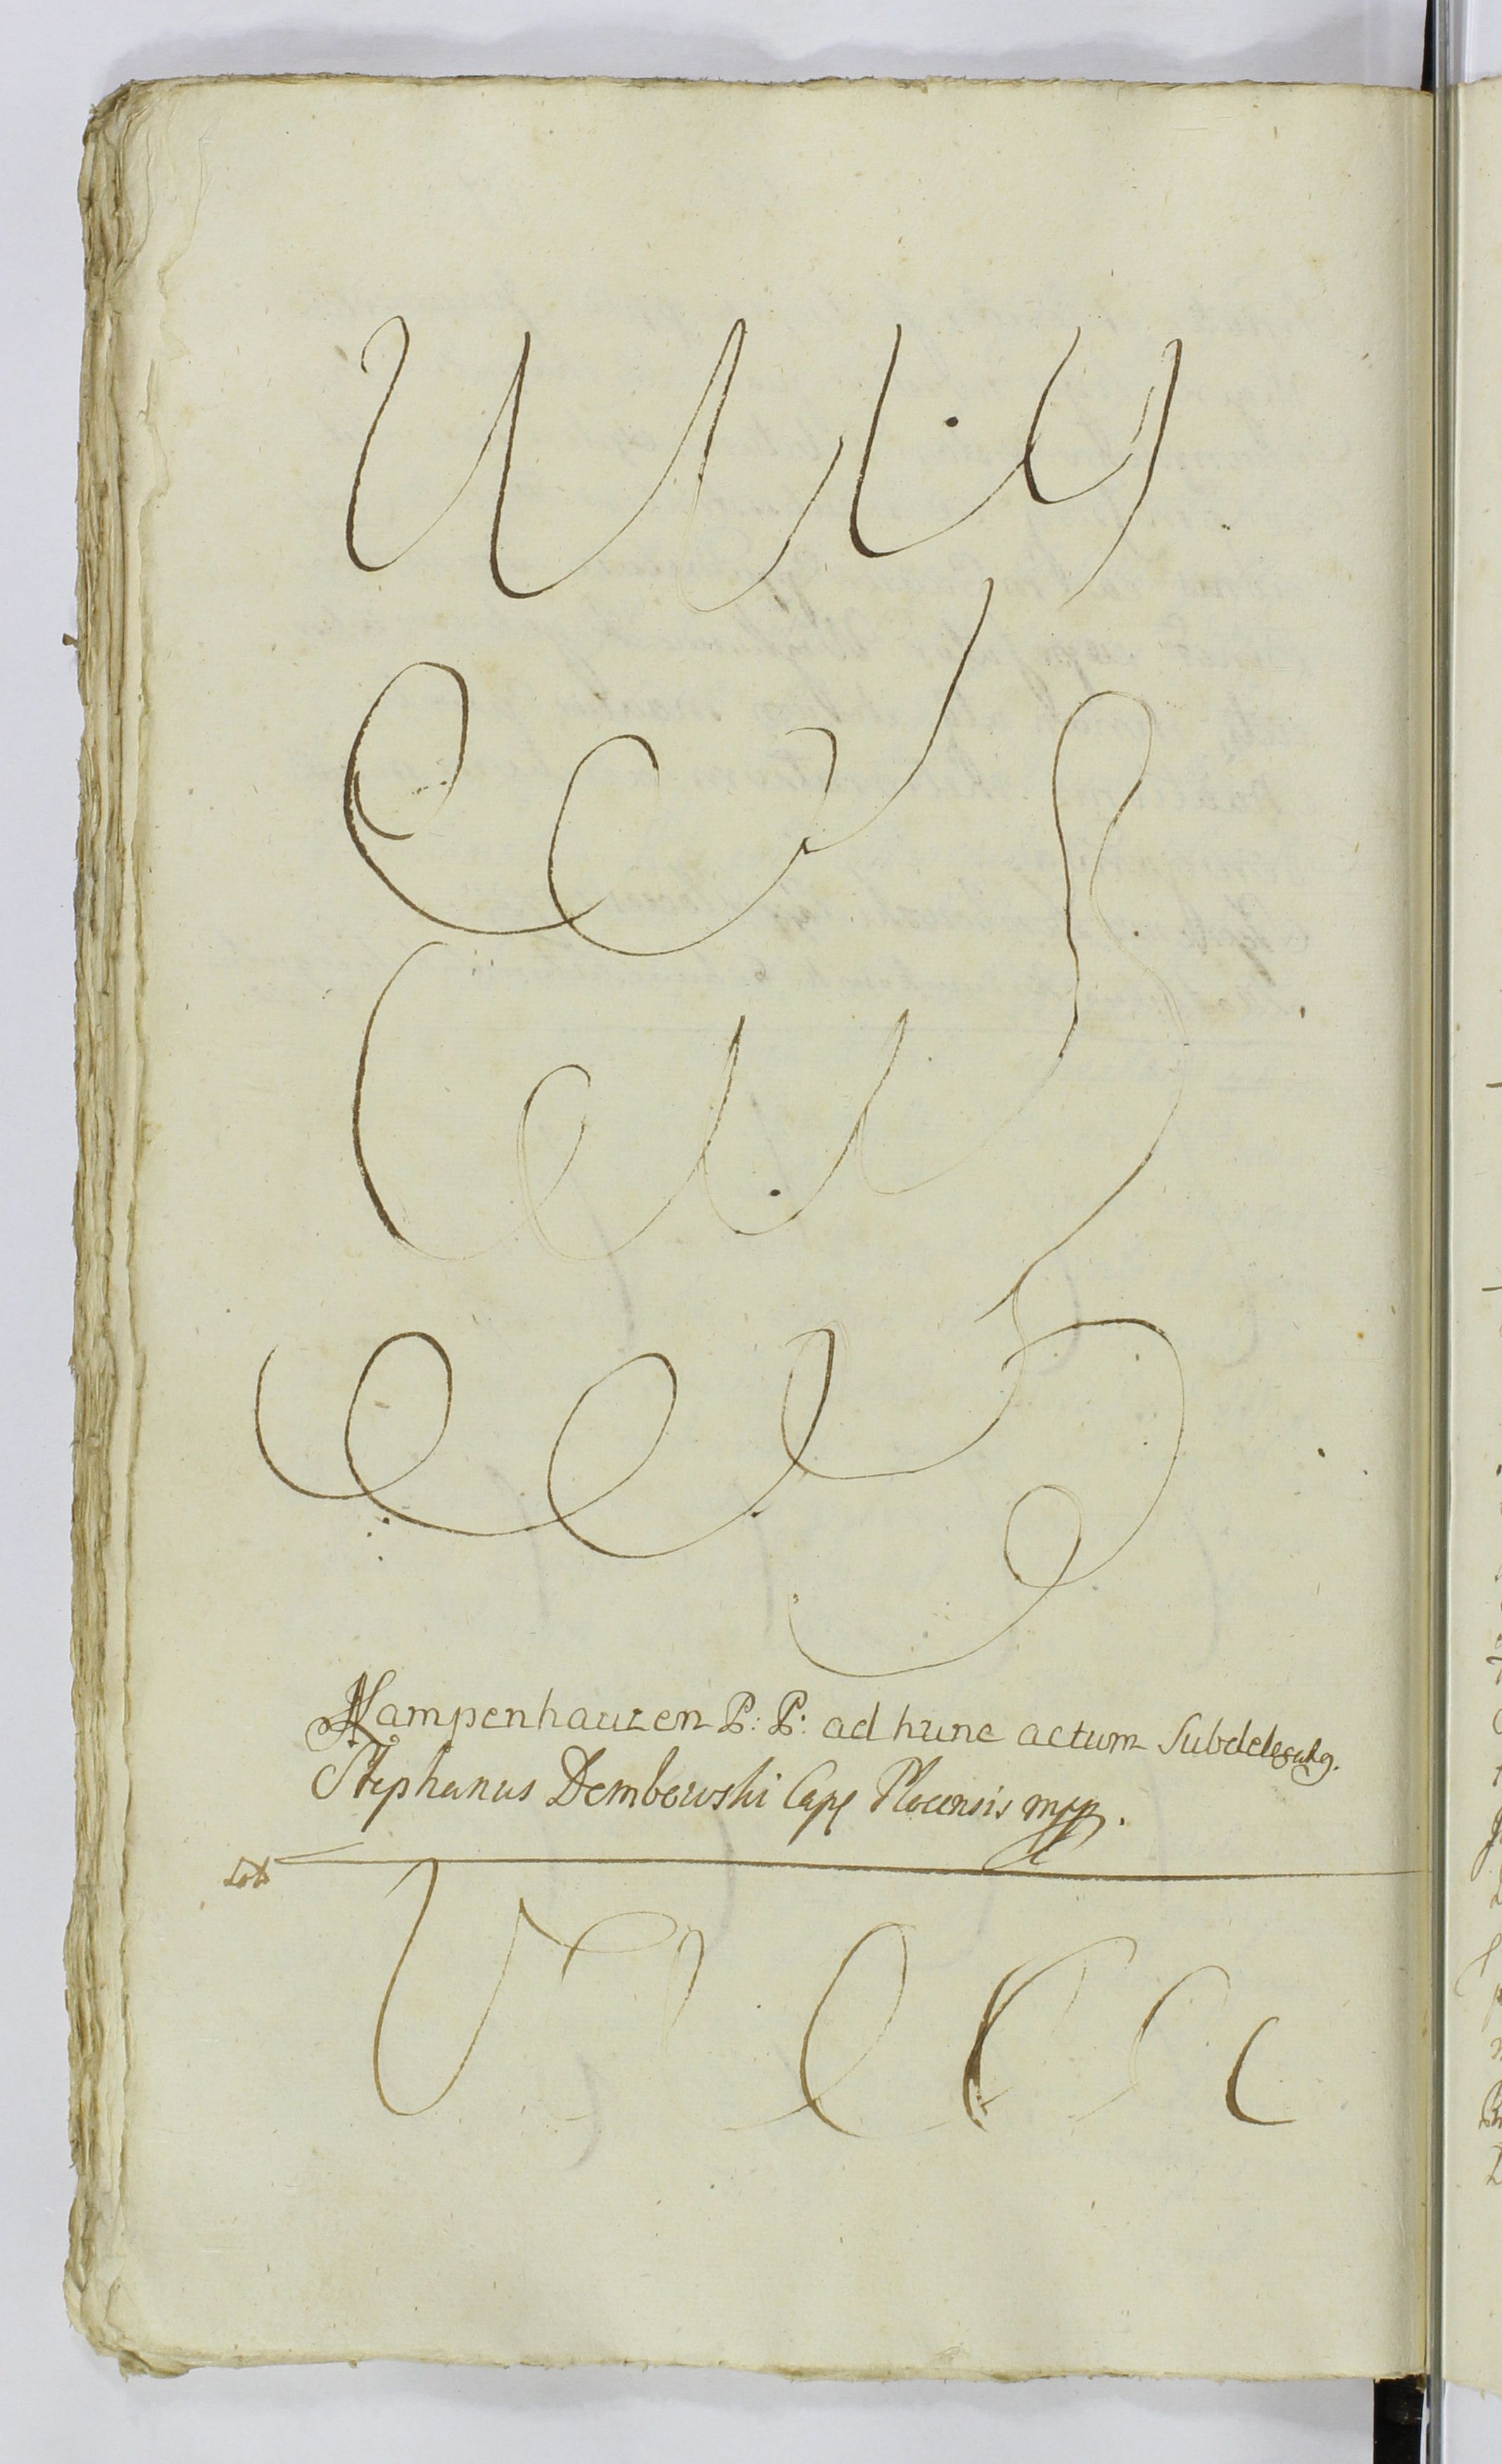 Kampenhauzen P: P: ad hunc actum Subdelegatq.
Stephanus Dembowski Cap Plocensis mpp.